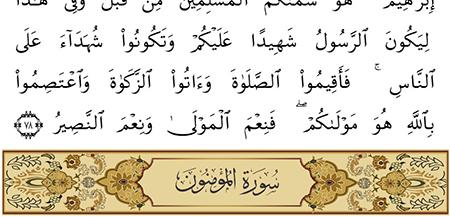 إِبْرَٰهِيمَ ۚ هُوَ سَمَّىٰكُمُ ٱلْمُسْلِمِينَ مِن قَبْلُ وَفِى هَٰذَا
لِيَكُونَ ٱلرَّسُولُ شَهِيدًا عَلَيْكُمْ وَتَكُونُوا۟ شُهَدَآءَ عَلَى
ٱلنَّاسِ ۚ فَأَقِيمُوا۟ ٱلصَّلَوٰةَ وَءَاتُوا۟ ٱلزَّكَوٰةَ وَٱعْتَصِمُوا۟
بِٱللَّهِ هُوَ مَوْلَىٰكُمْ ۖ فَنِعْمَ ٱلْمَوْلَىٰ وَنِعْمَ ٱلنَّصِيرُ ٧٨
سُورَةُ المُؤْمِنُونَ